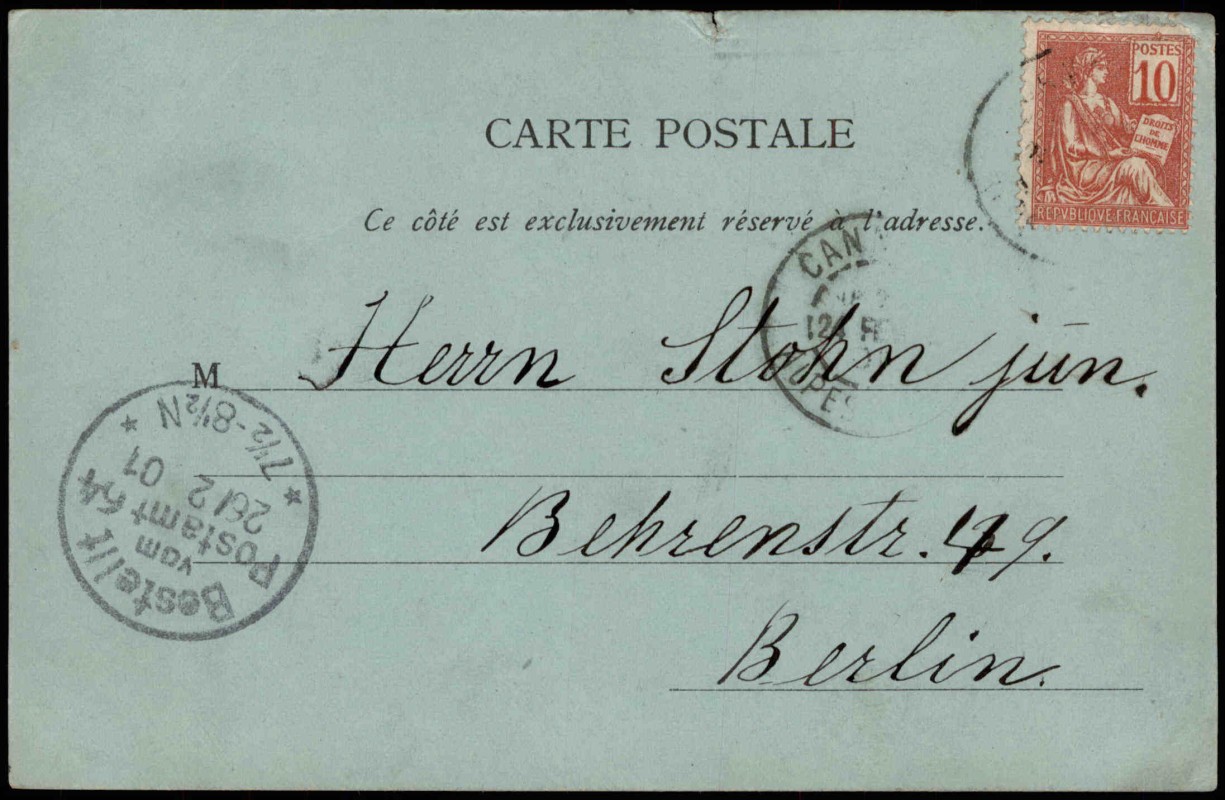 POSTES
10
DROITS
DE
L'HOMME
REPVBLIQVE·FRANÇAISE
CARTE POSTALE
Ce côté est exclusivement réservé à l'adresse.
CAN
M Herrn Stohn jun.
Behrenstr. 49.
Berlin.
Bestellt
vom
Postamt 64
26/2 01
* 7½-8½N *